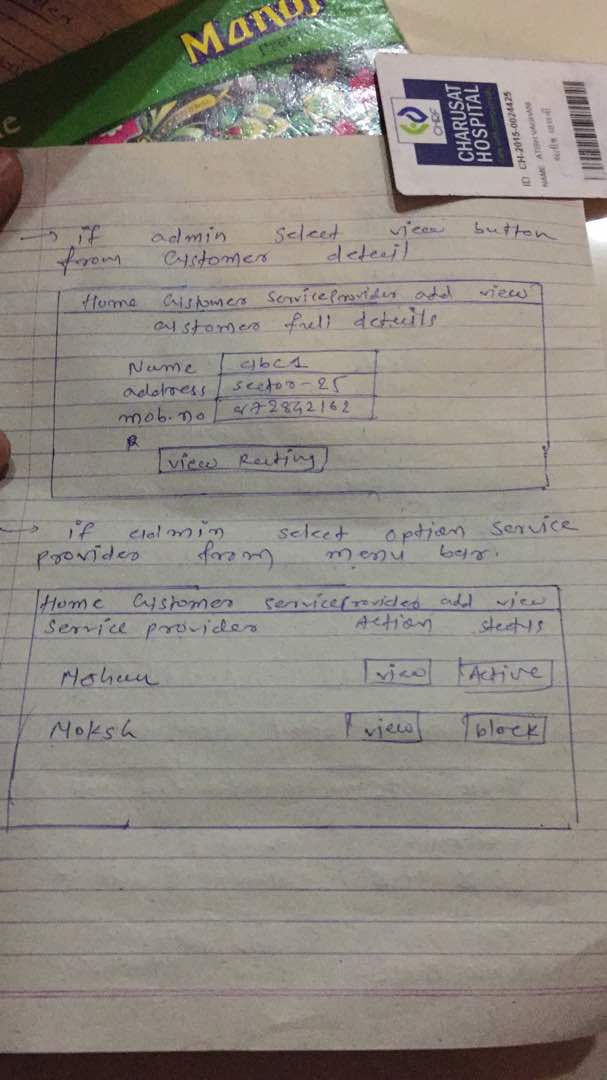 Manoj
CHRF
CHARUSAT
HOSPITAL
ID CH-2015-0024425
NAME
→ if admin select view button
from customer detail
Home Customer ServiceProvider add view
customer full details
Name abc1
address sector-25
mob.no
view Rating
→ if admin select option service
provider from menu bar.
Home Customer serviceProvider add view
Service provider Action status
Mohan view Active
Moksh view block